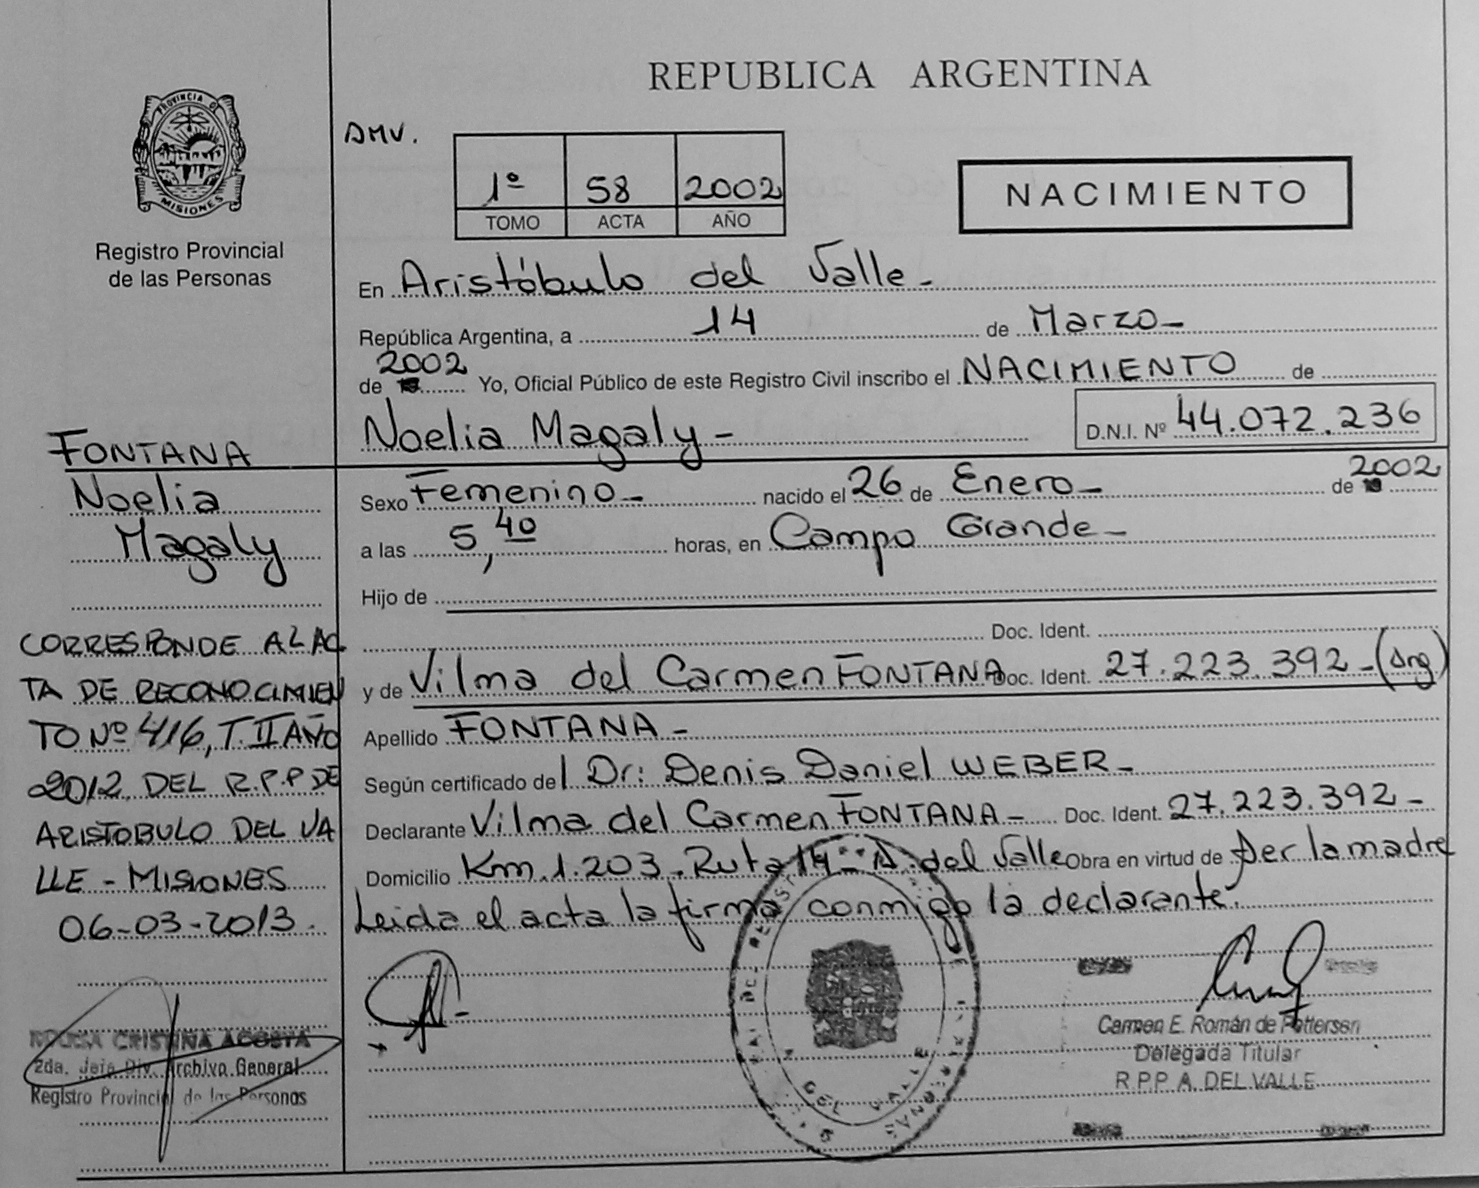 REPUBLICA ARGENTINA
PROVINCIA DE
MISIONES
Registro Provincial
de las Personas
DMV.
1º 58 2002
TOMO ACTA AÑO
NACIMIENTO
En Aristóbulo del Valle.-
República Argentina, a 14 de Marzo.-
de 2002 Yo, Oficial Público de este Registro Civil inscribo el NACIMIENTO de
Noelia Magaly.- D.N.I. Nº 44.072.236
Sexo Femenino.- nacido el 26 de Enero.- de 2002
a las 5,40 horas, en Campo Grande.-
Hijo de
Doc. Ident.
y de Vilma del Carmen FONTANA Doc. Ident. 27.223.392.-(Arg)
Apellido FONTANA.-
Según certificado del Dr: Denis Daniel WEBER.-
Declarante Vilma del Carmen FONTANA.- Doc. Ident. 27.223.392.-
Domicilio Km.1.203.Ruta 14.- A. del Valle Obra en virtud de ser la madre
Leida el acta la firma conmigo la declarante.
FONTANA
Noelia
Magaly
CORRESPONDE AL AC
TA DE RECONOCIMIEN
TO Nº 416, T. II AÑO
2012 DEL R.P.P DE
ARISTOBULO DEL VA
LLE - MISIONES
06-03-2013.
CRISTINA ACOSTA
2da. Jefe Div. Archivo General
Registro Provincial de las Personas
Carmen E. Román de Pettersen
Delegada Titular
R.P.P. A. DEL VALLE